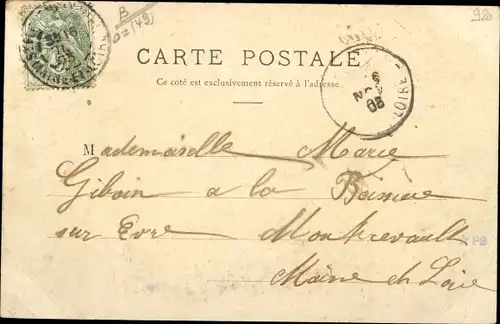 B
D=(49)
920
CARTE POSTALE
Ce côté est exclusivement réservé à l'adresse
6
NOV
05
LOIRE
Mademoiselle Marie
Giboin a la Boissière
sur Evre Montrevault
PB
Maine et Loire